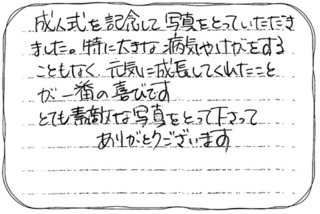 成人式を記念して写真をとっていただき
ました。特に大きな病気やけがをする
こともなく元気に成長してくれたこと
が一番の喜びです
とても素敵な写真をとって下さって
ありがとうございます